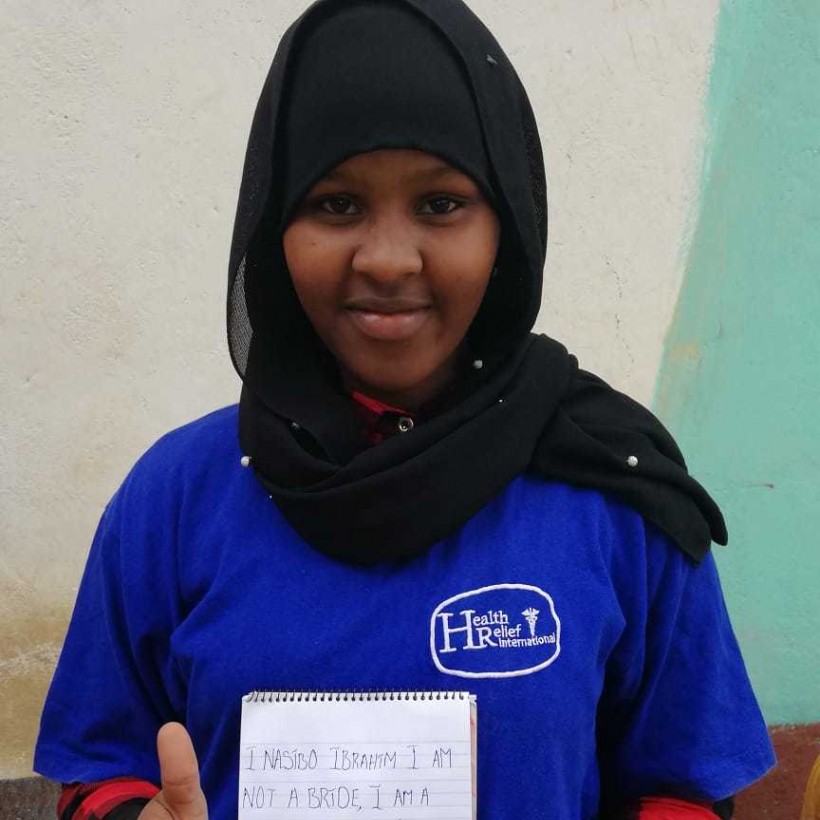 Health
Relief
International
I NASIBO IBRAHIM I AM
NOT A BRIDE, I AM A